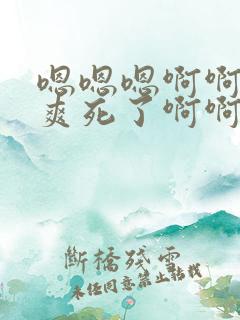 嗯嗯嗯啊啊
爽死了啊啊
断橋殘雪
未经同意禁止转载